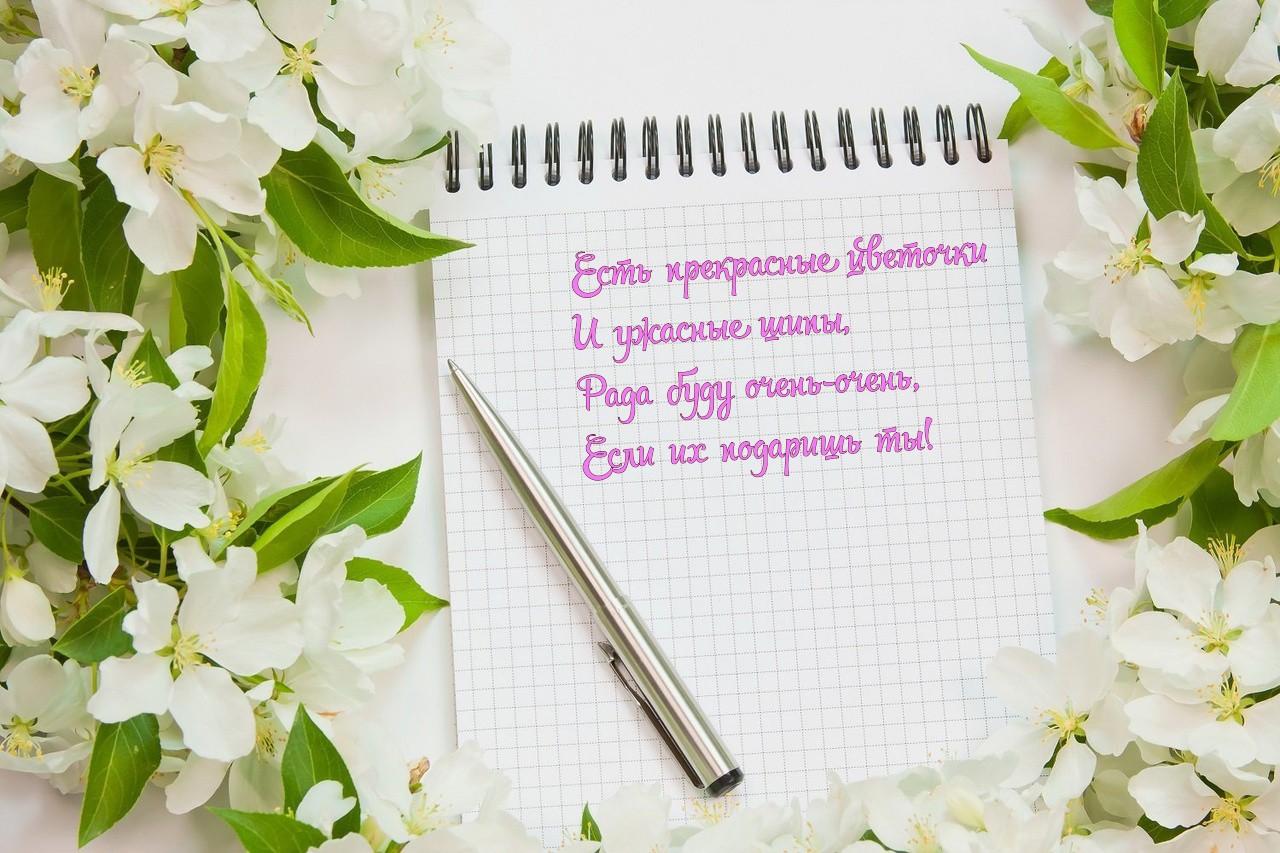 Есть прекрасные цветочки
И ужасные шипы,
Рада буду очень-очень,
Если их подаришь ты!